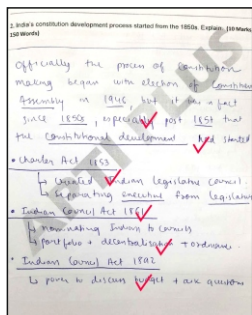 2. India's constitution development process started from the 1850s. Explain. (10 Marks,
150 Words)
Officially the process of constitution
making began with election of Constituent
Assembly in 1946 but it is a fact
since 1850s, especially post 1857 that
the constitutional development had started
• Charter Act 1853
↳ Created Indian legislative council.
↳ Separating executive from legislature
• Indian Council Act 1861
→ nominating Indians to councils
→ portfolio + decentralisation + ordinance.
• Indian Council Act 1892
↳ power to discuss budget + ask questions